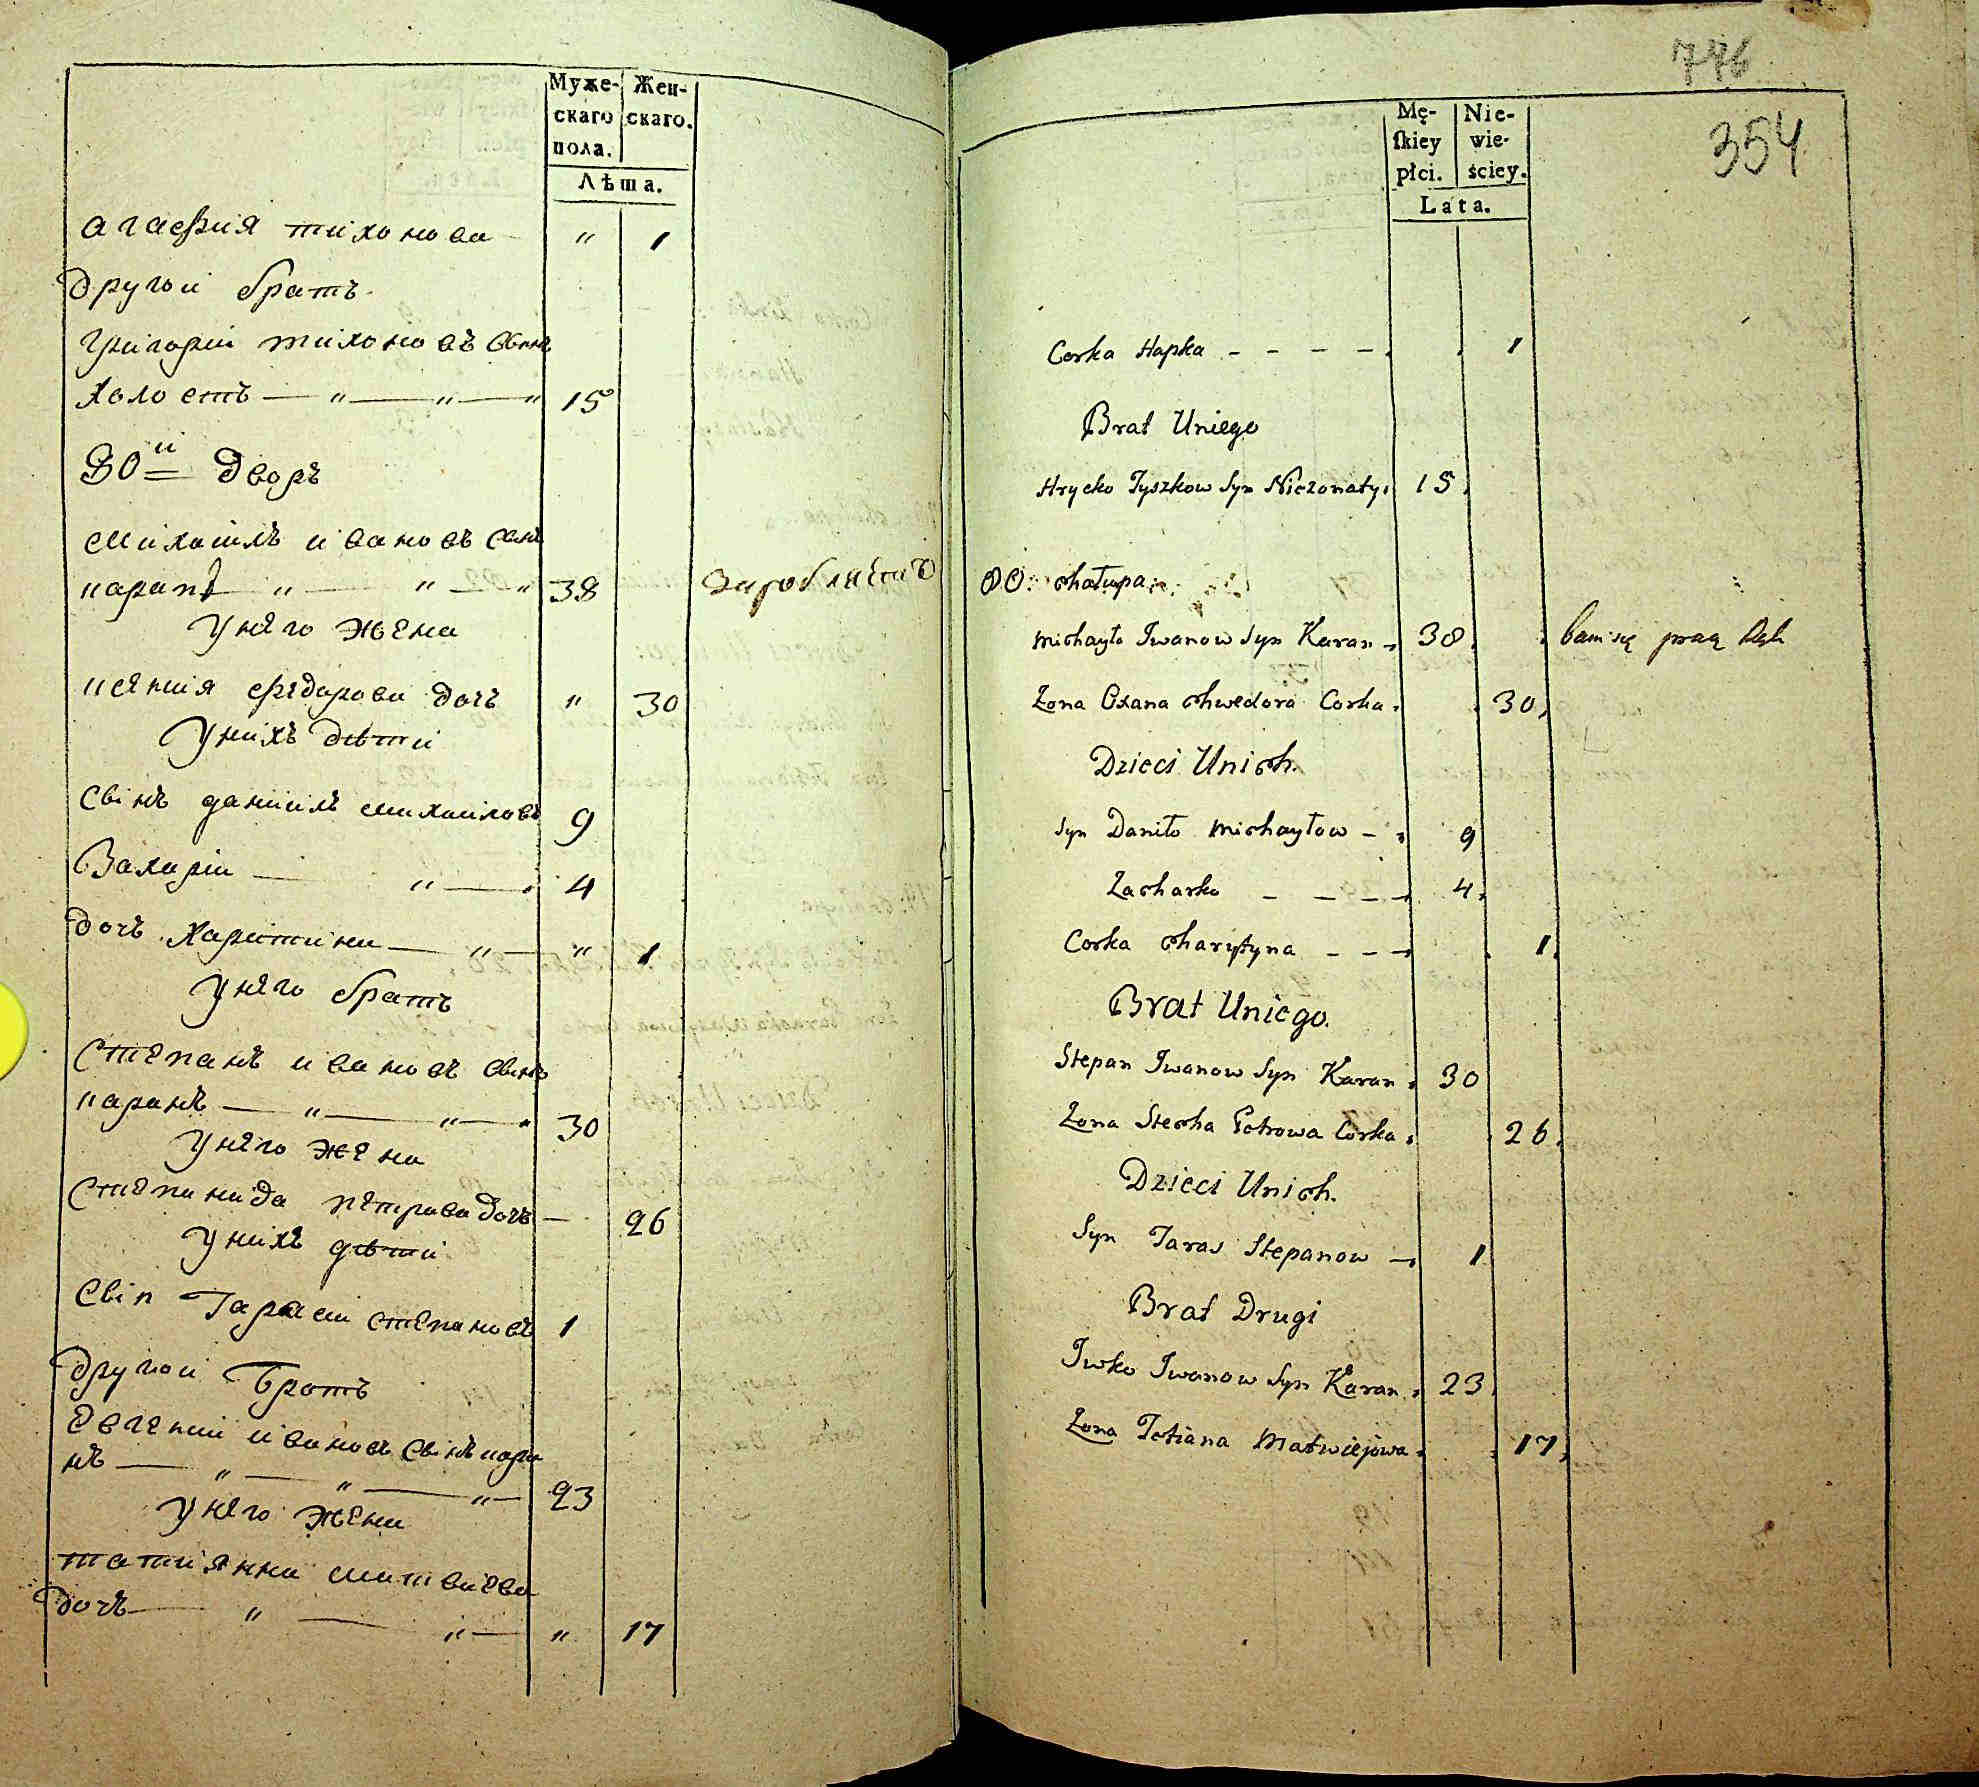 Муже-
скаго
пола.
Жен-
скаго.
Лѣта.
агафия тихонова " 1
другои братъ
григорий тихоновъ свинъ
холостъ — " — " — " 15
80и дворъ
михаилъ ивановъ свинъ
" — " — " 38
унего жена
ксения федорова дочъ " 30
унихъ дѣти
свінъ даниилъ михаиловъ 9
Захарiи — " — 4
дочъ харитина — " — " 1
унего братъ
степанъ ивановъ свинъ
каранъ — " — " — 30
унего жена
степанида петрова дочъ — 26
унихъ дѣти
свiн Тарасiи степановъ 1
другои Братъ
Евгений ивановъ свiнъ кара
нъ — " — " — " — 23
унего жена
татиянна матвиева
дочъ — " — " — " 17
776
354
Mę-
ſkiey
płci.
Nie-
wie-
ściey.
Lata.
Corka Hapka - - - - 1
Brat Uniego
Hrycko Tyszkow Syn Niezonaty 15
80. chałupa
Michayło Iwanow Syn Karan 38
Zona Oxana Chwedora Corka 30
Dzieci Unich.
Syn Daniło Michayłow - 9
Zacharko - - - - 4
Corka Charytyna - - - 1
Brat Uniego.
Stepan Iwanow Syn Karan 30
Zona Stecha Petrowa Corka 26
Dzieci Unich.
Syn Taras Stepanow - 1
Brat Drugi
Iwko Iwanow Syn Karan 23
Zona Tatiana Matwiejowa 17